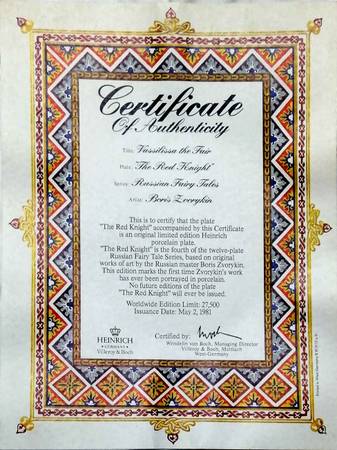 Certificate
Of Authenticity
Title: Vassilissa the Fair
Plate: "The Red Knight"
Series: Russian Fairy Tales
Artist: Boris Zvorykin
This is to certify that the plate
"The Red Knight" accompanied by this Certificate
is an original limited edition Heinrich
porcelain plate.
"The Red Knight" is the fourth of the twelve-plate
Russian Fairy Tale Series, based on original
works of art by the Russian master Boris Zvorykin.
This edition marks the first time Zvorykin's work
has ever been portrayed in porcelain.
No future editions of the plate
"The Red Knight" will ever be issued.
Worldwide Edition Limit: 27,500
Issuance Date: May 2, 1981
HEINRICH
GERMANY
Villeroy & Boch
Certified by:
Wendelin von Boch, Managing Director
Villeroy & Boch, Mettlach
West-Germany